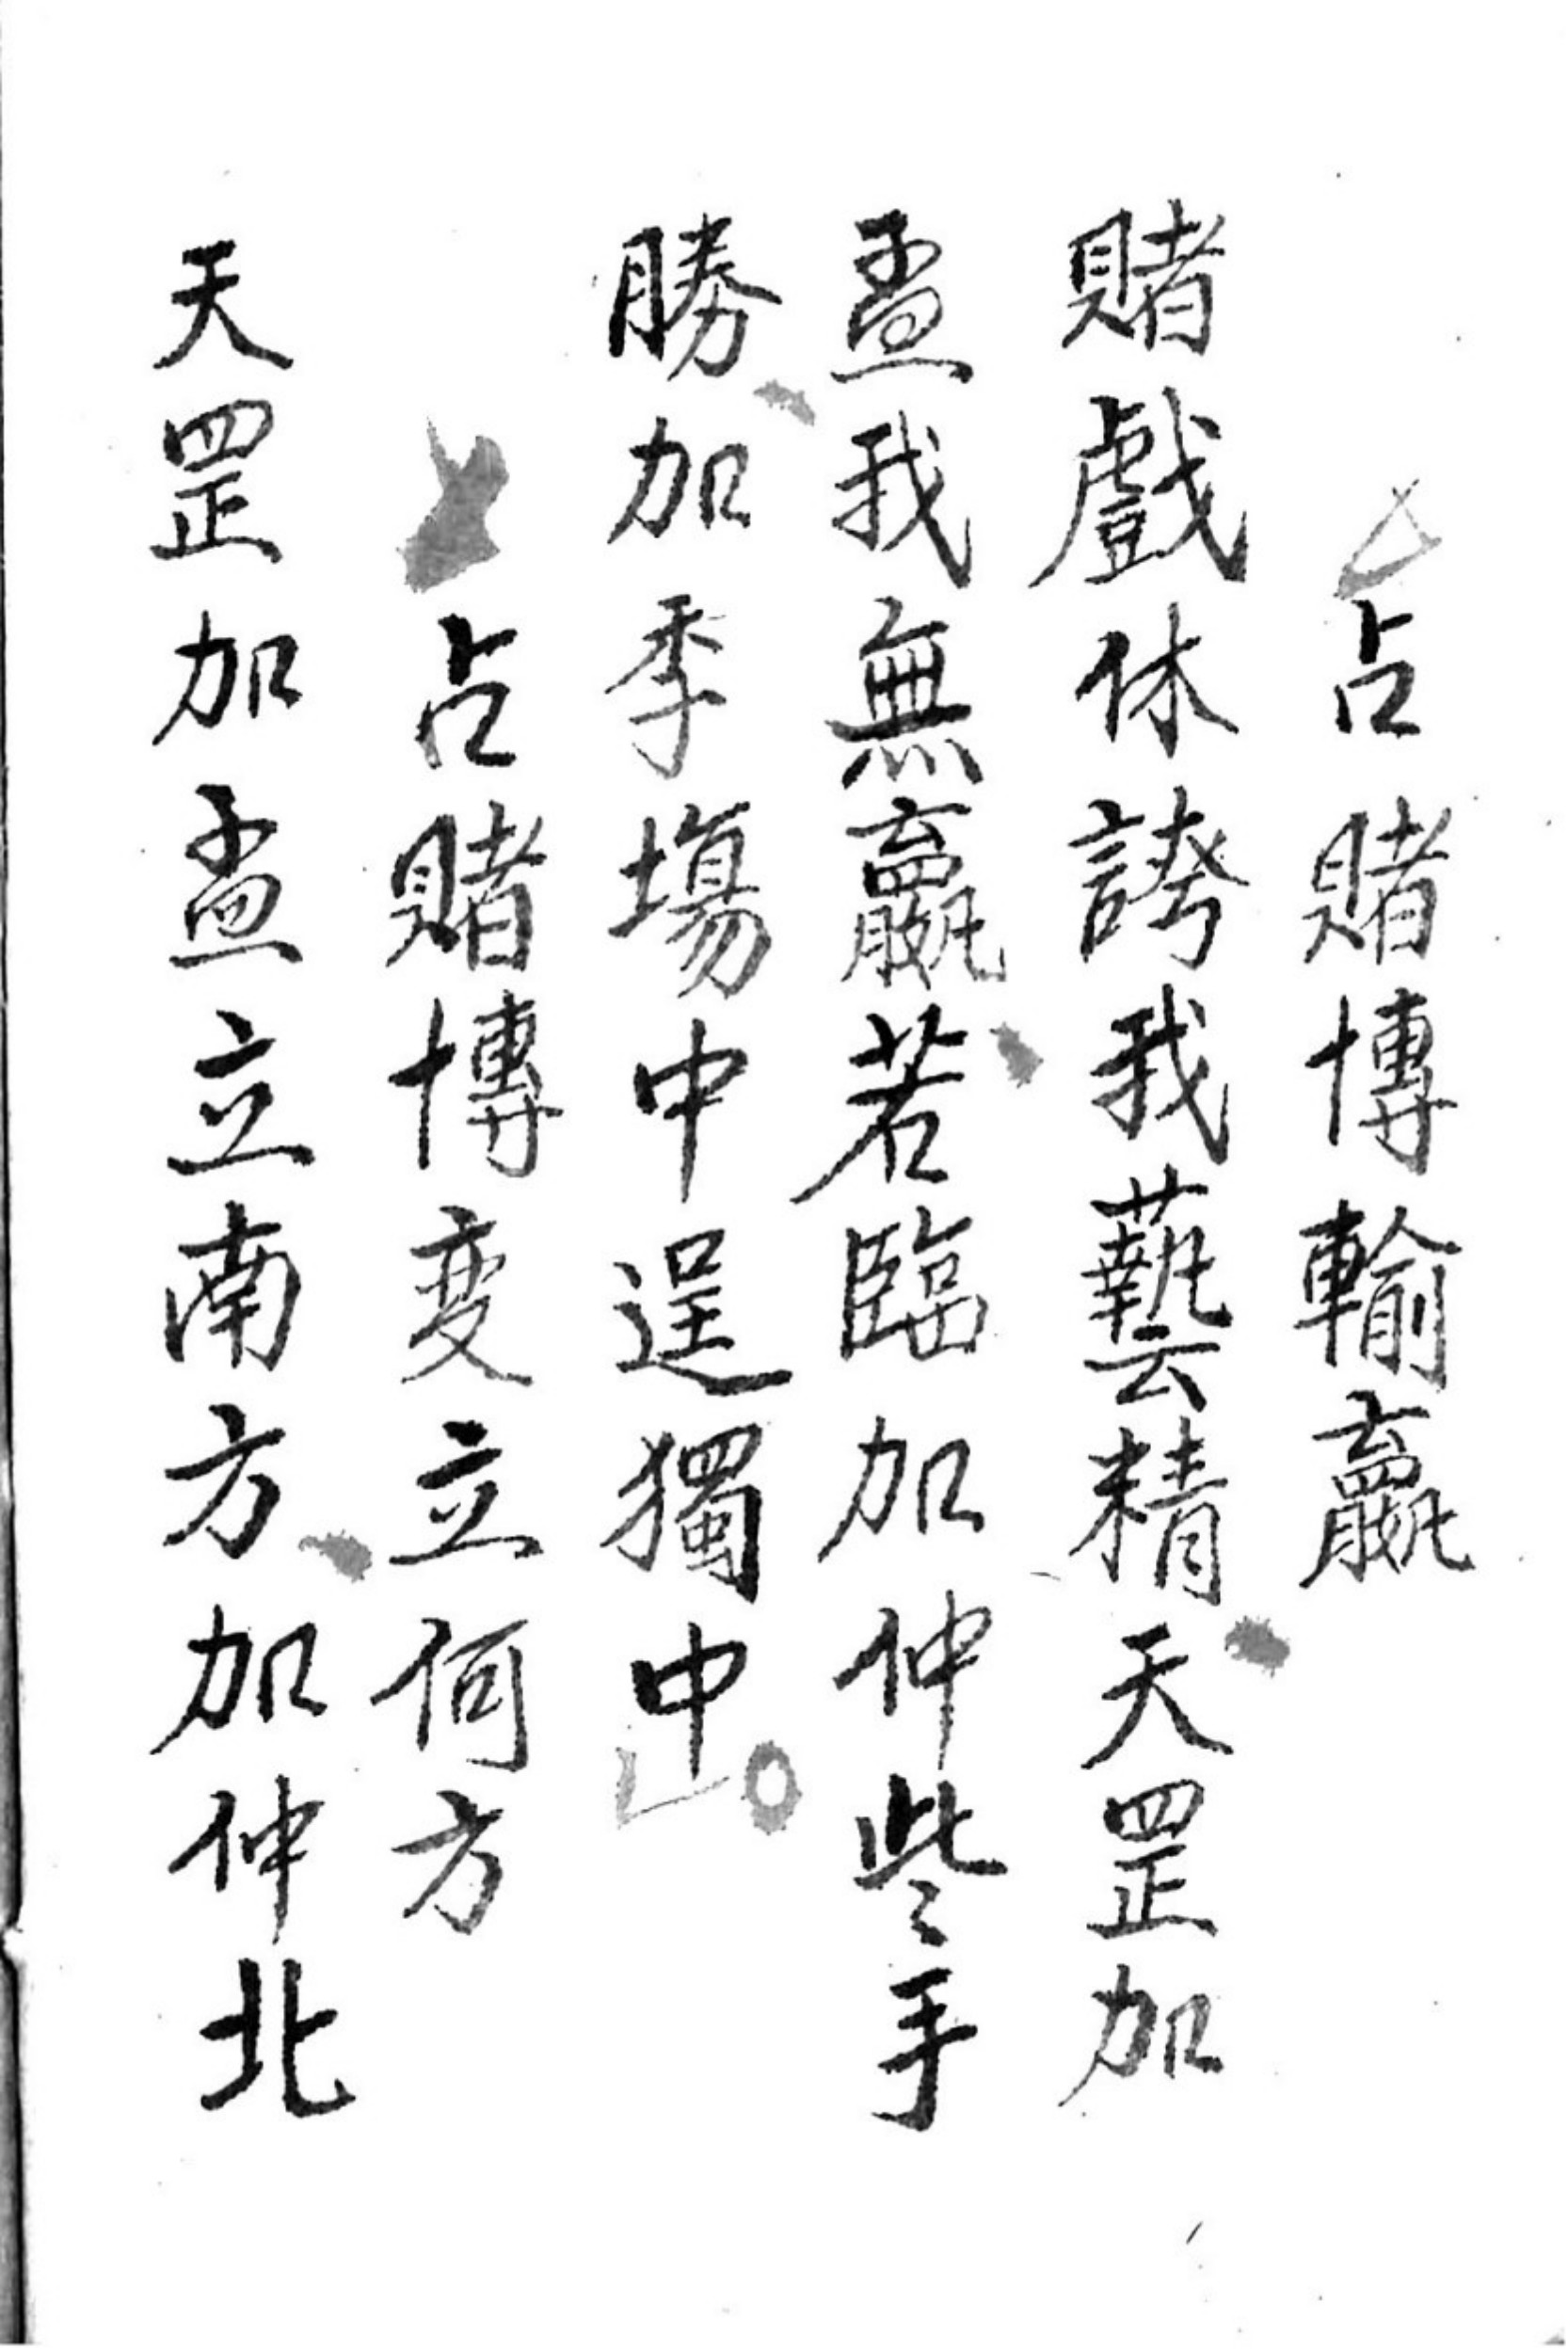 占賭博輸贏
賭戲休誇我藝精天罡加
孟我無贏若臨加仲些々手
勝加季塲中逞獨中
占賭博变立何方
天罡加孟立南方加仲北